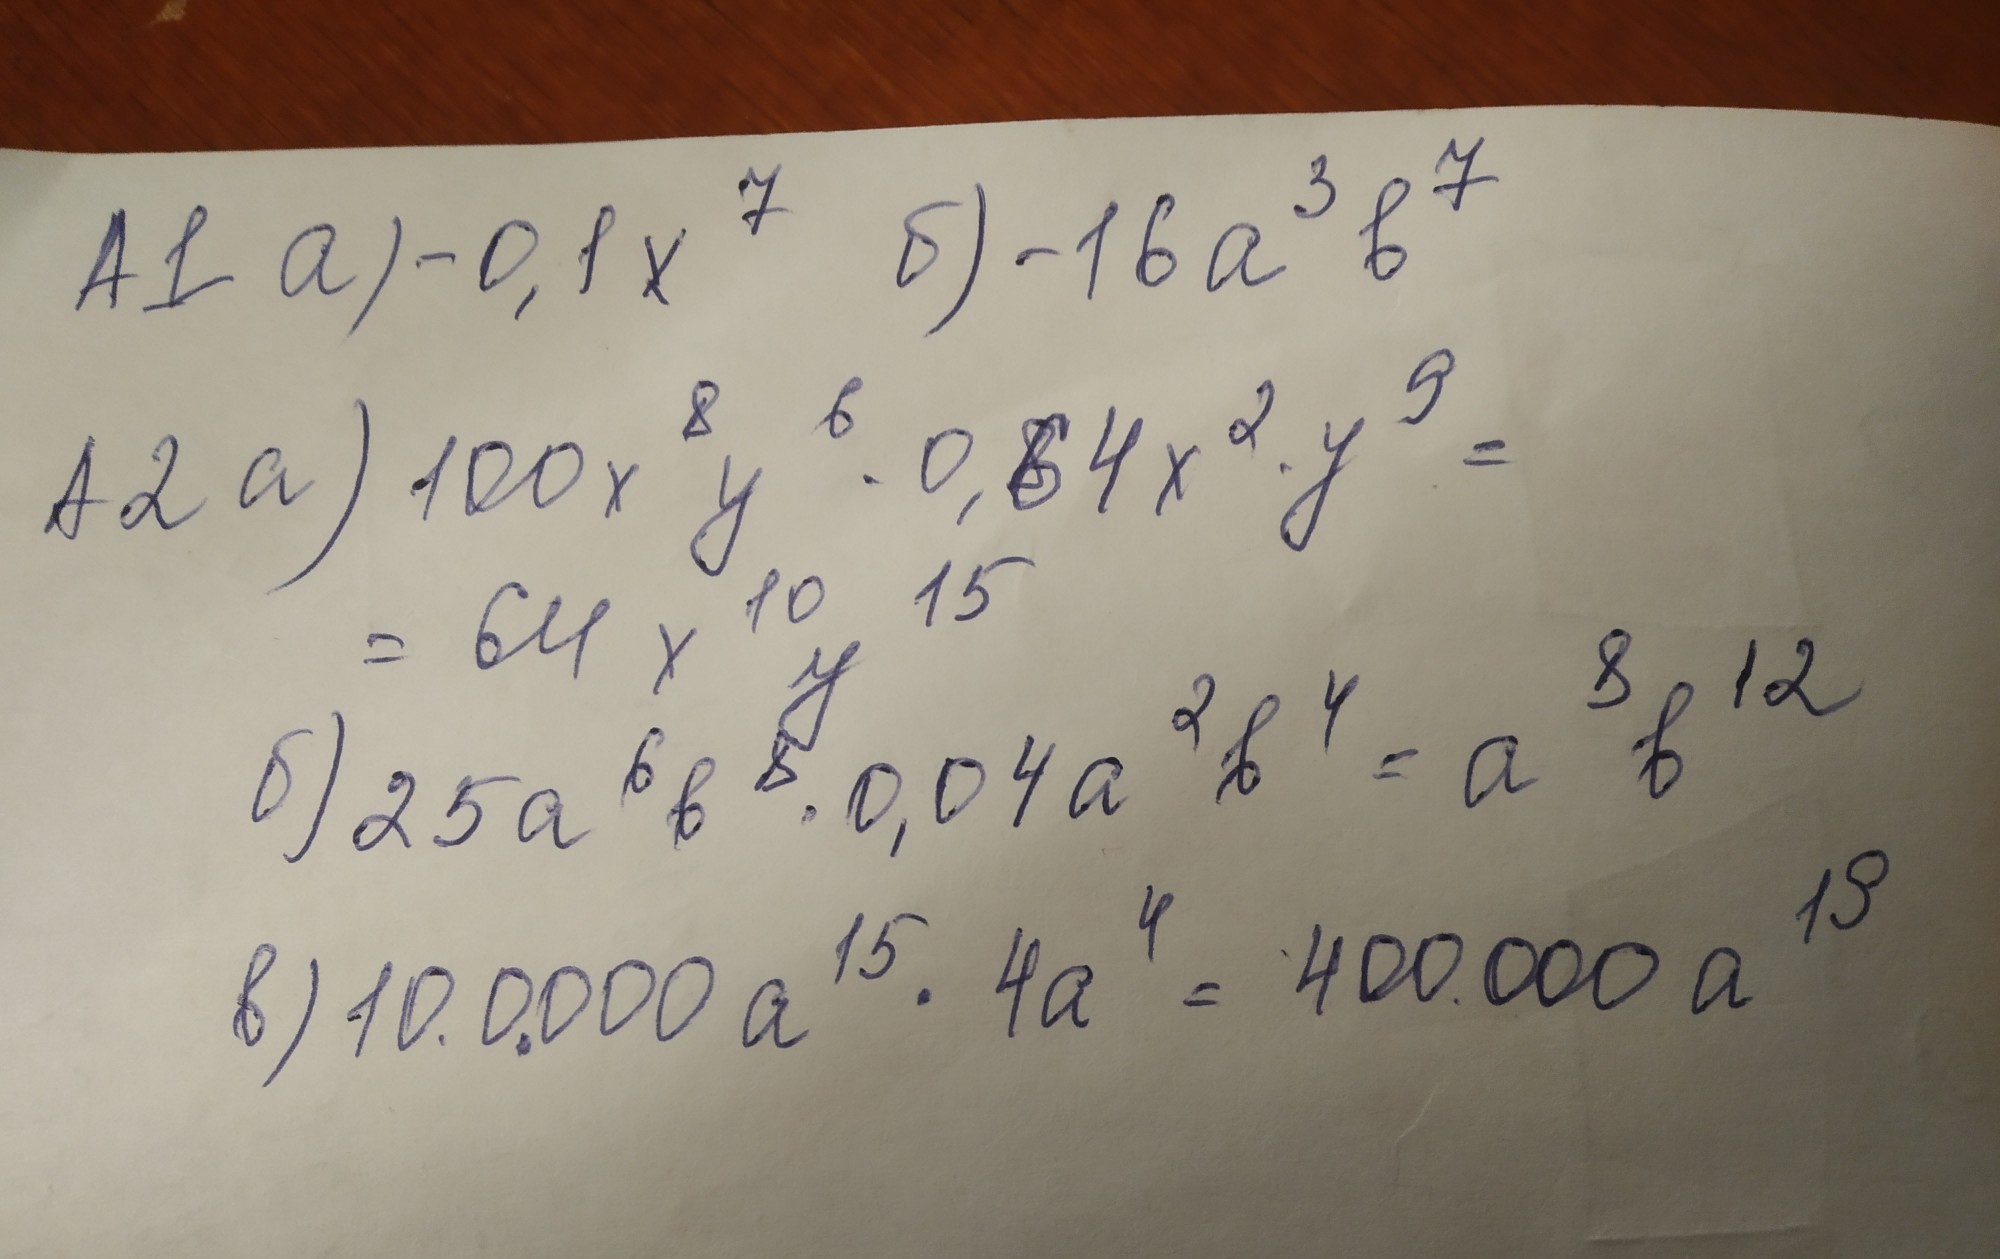 А1 а) -0,1x⁷ б) -16a³b⁷
А2 а) 100x⁸y⁶ · 0,64x² · y⁹ =
= 64x¹⁰y¹⁵
б) 25a⁶b⁸ · 0,04a²b⁴ = a⁸b¹²
в) 10.0.000a¹⁵ · 4a⁴ = 400.000a¹⁹